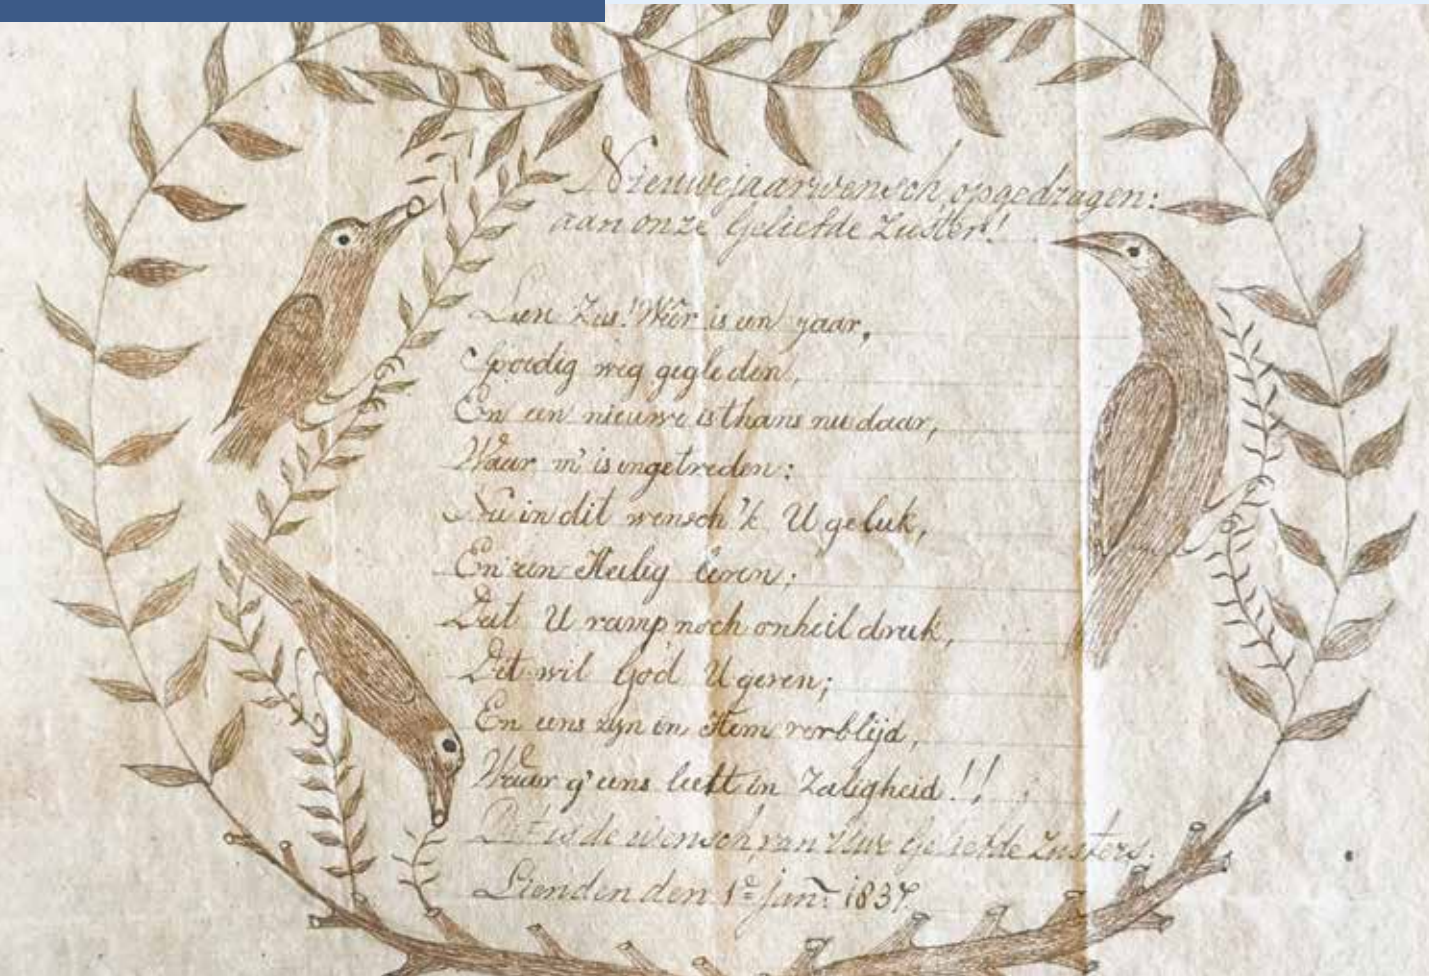 Nieuwejaarwensch, opgedragen:
aan onze Geliefde Zuster!
Lien Zus! Wéér is een jaar,
Spoedig weg gegleden,
En een nieuwe is thans nu daar,
Waar m' is ingetreden:
Nu in dit wensch 'k U geluk,
En een Heilig leven;
Dat U ramp noch onheil druk,
Dit wil God U geven;
En eens zijn in Hem verblijd,
Waar g' eens leeft in Zaligheid!!
Dit is de wensch, van Uwe Geliefde Zusters,
Lienden den 1e Jan: 1837.